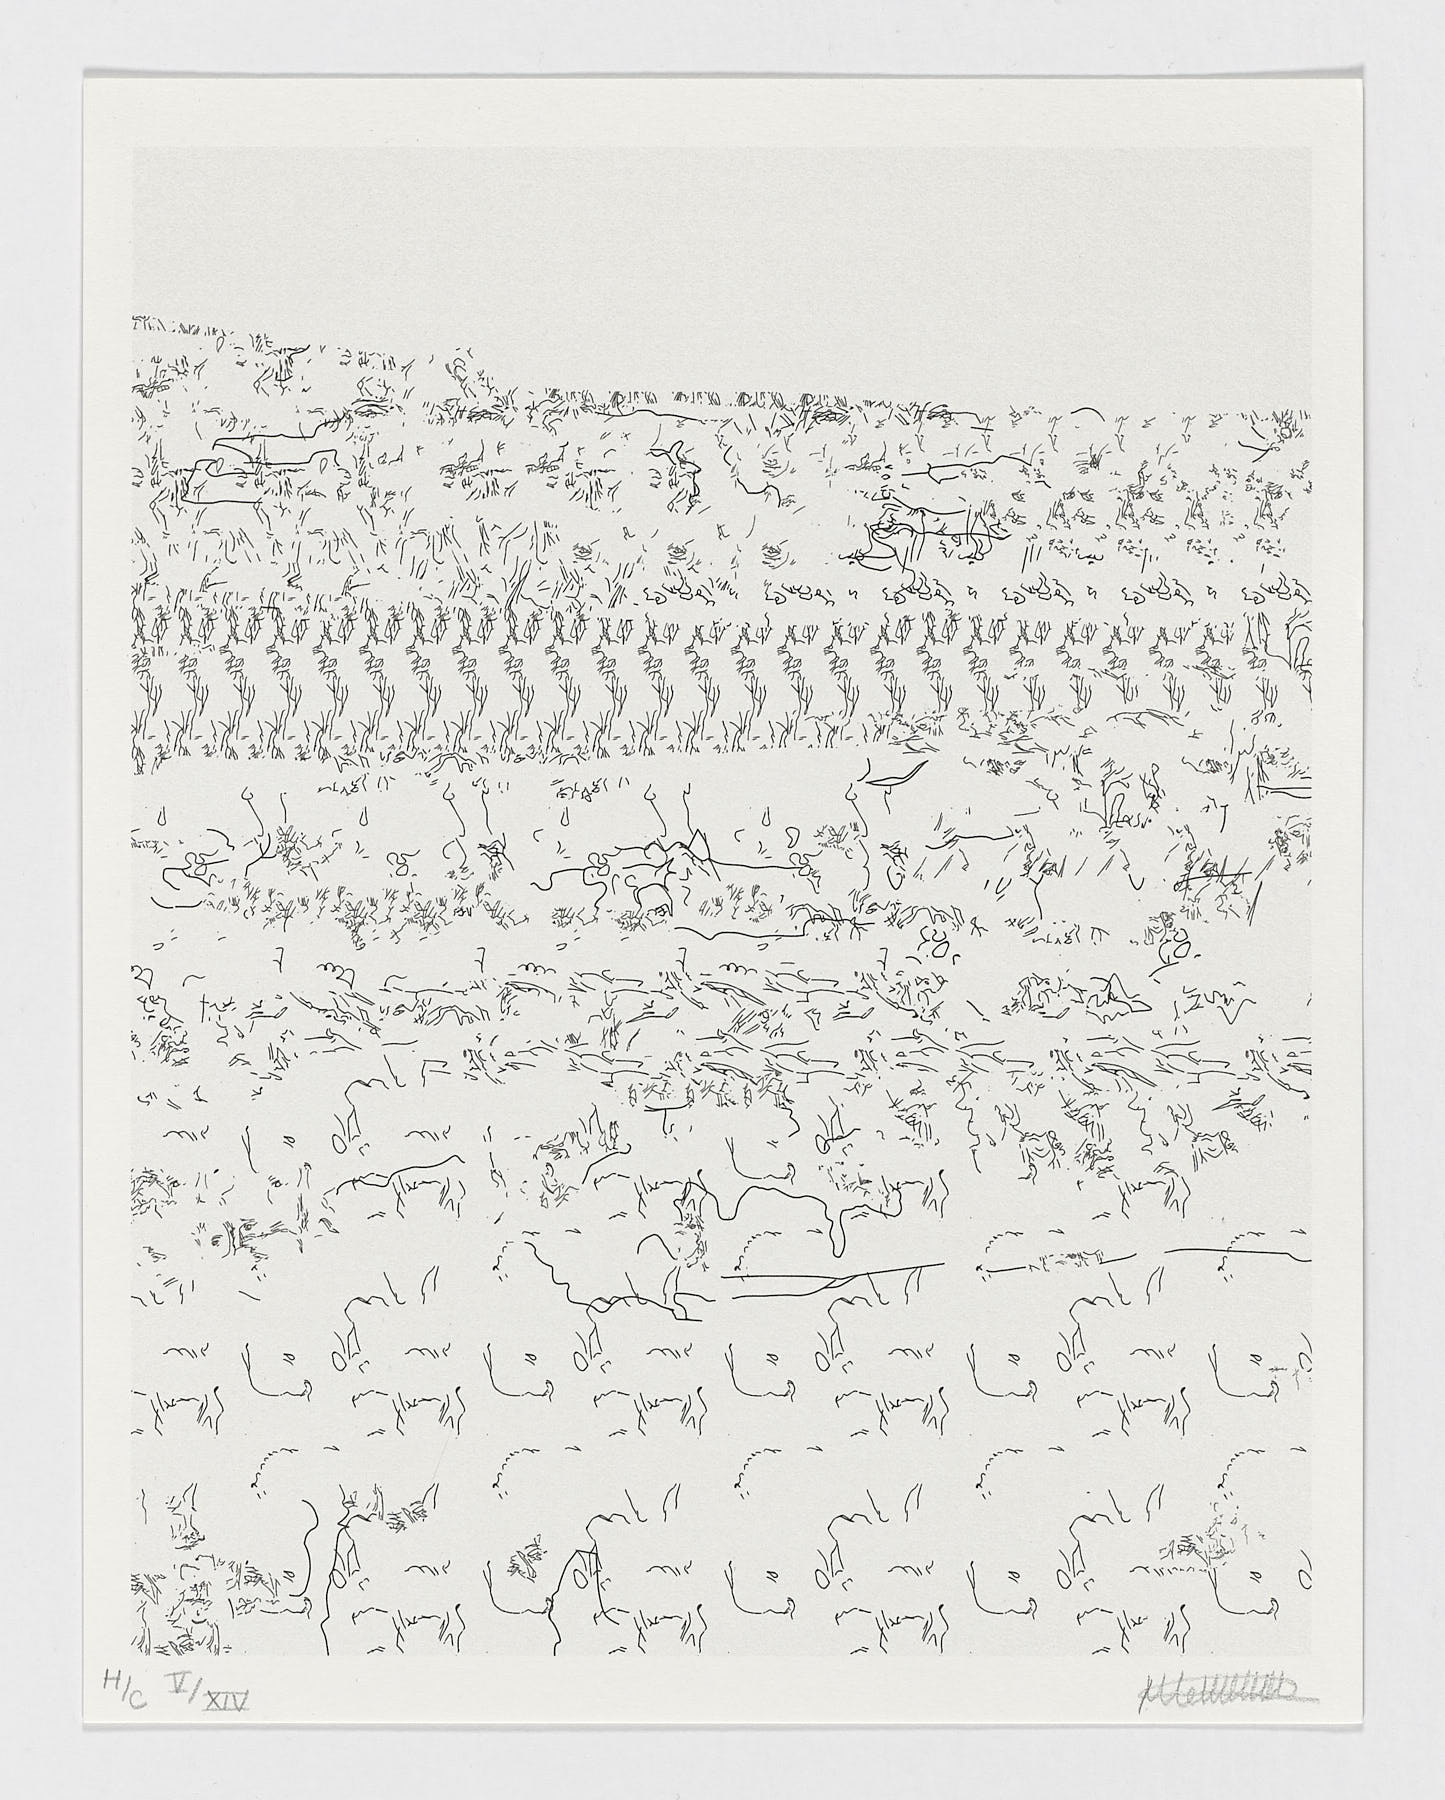 H/C V/XIV